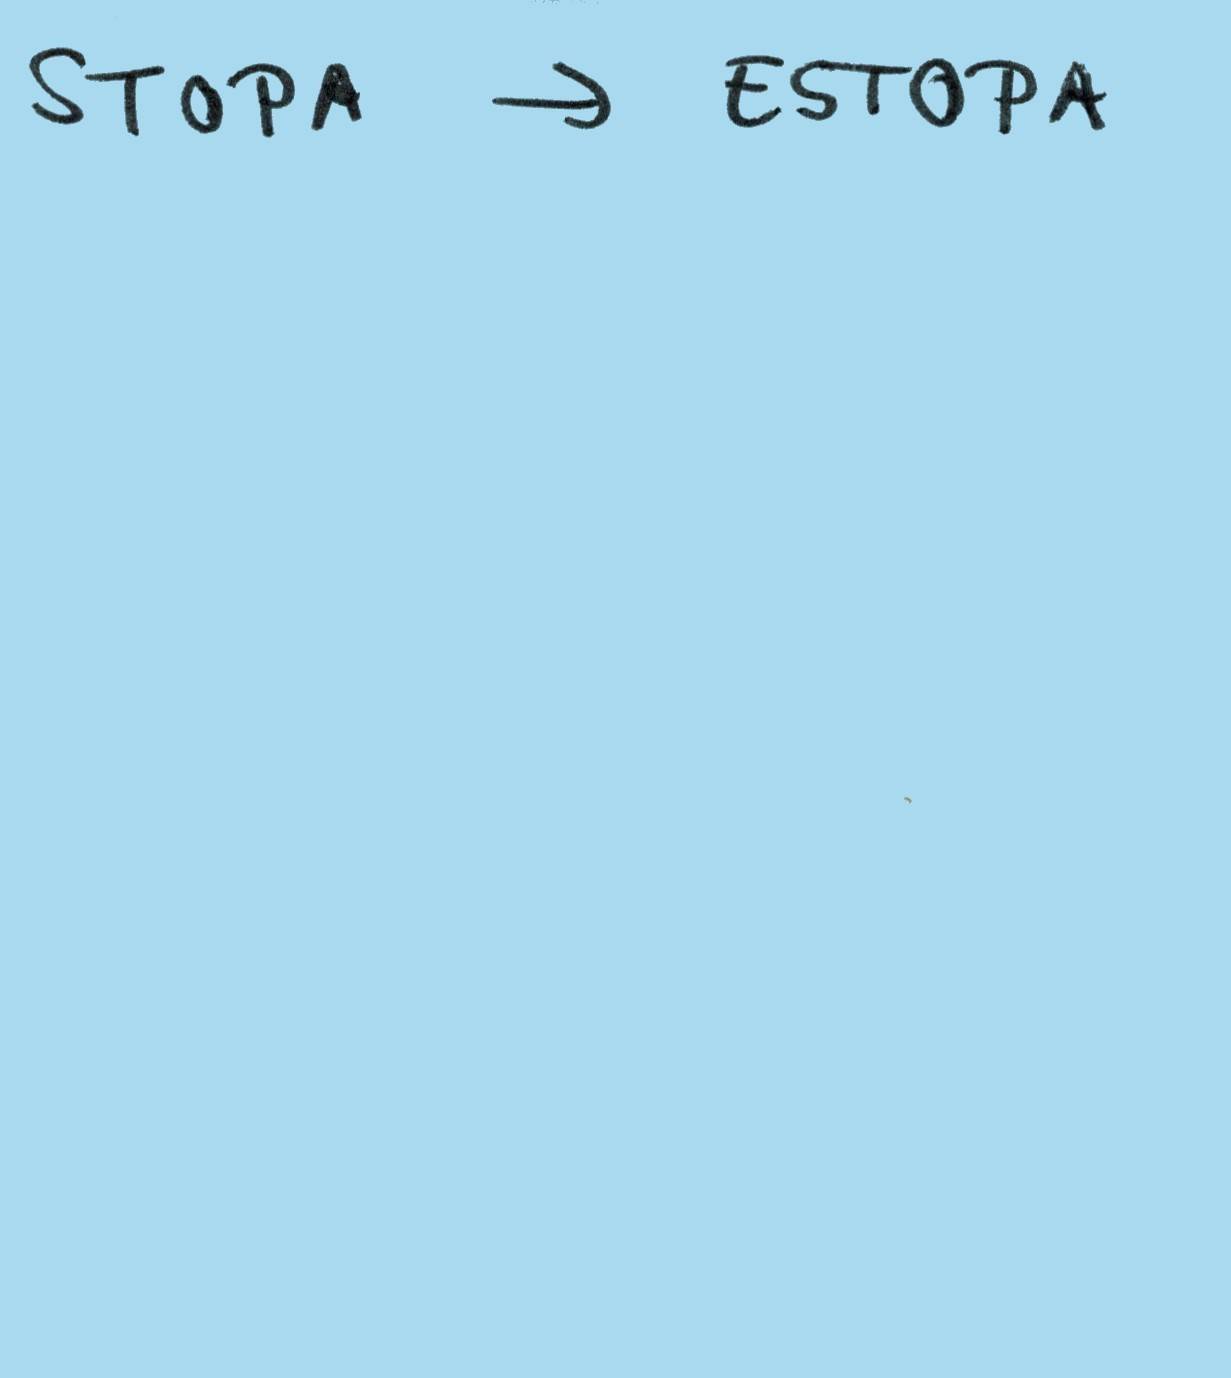 STOPA → ESTOPA